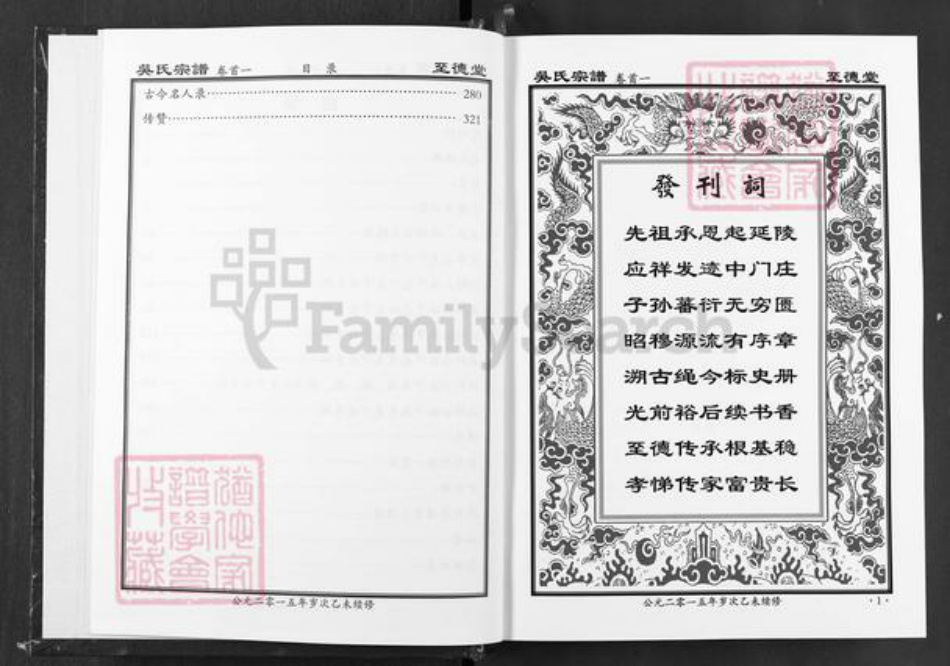 吳氏宗譜 卷首一 目 录 至德堂
古今名人录 280
传赞 321
公元二零一五年岁次乙未续修
吳氏宗譜 卷首一 至德堂
發刊詞
先祖承恩起延陵
应祥发迹中门庄
子孙蕃衍无穷匮
昭穆源流有序章
溯古绳今标史册
光前裕后续书香
至德传承根基稳
孝悌传家富贵长
公元二零一五年岁次乙未续修
·1·
FamilySearch